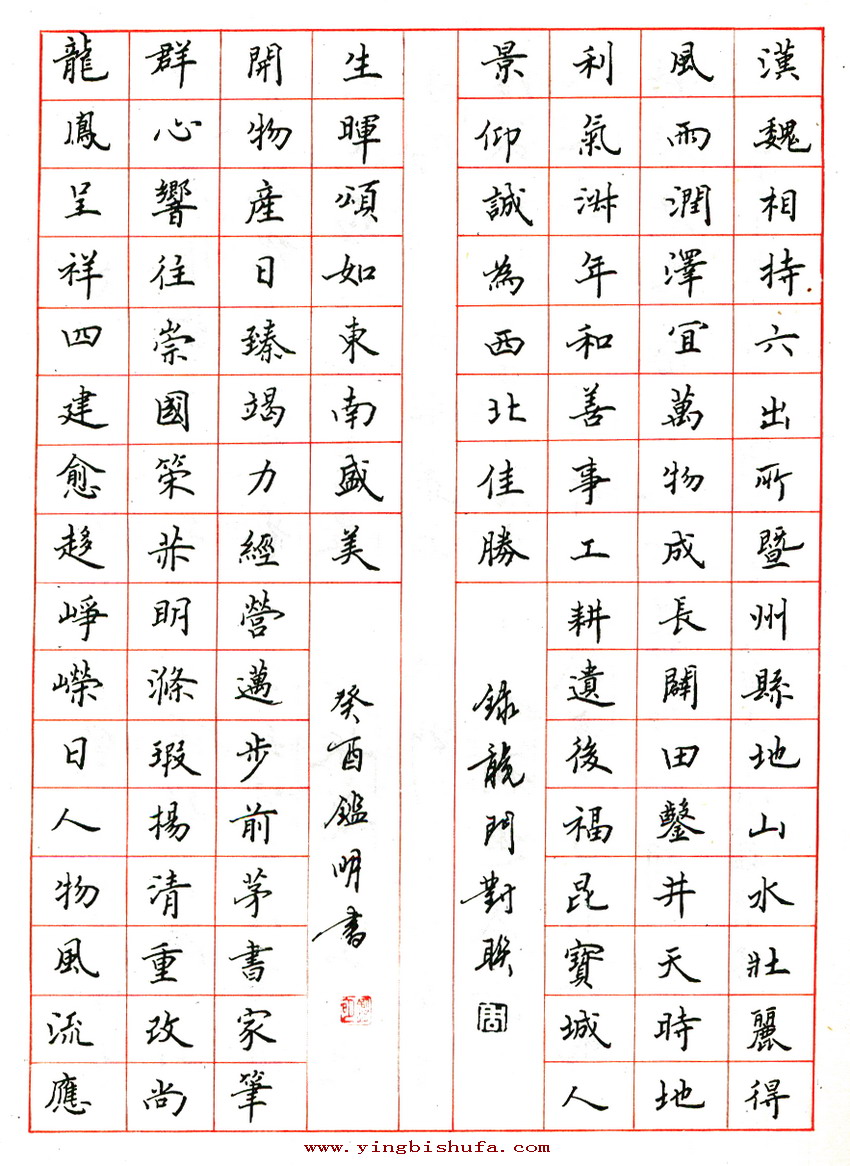 漢魏相持六出所暨州縣地山水壯麗得
風雨潤澤宜萬物成長闢田鑿井天時地
利氣淑年和善事工耕遺後福昆寶城人
景仰誠為西北佳勝
錄龍門對聯
周
龍鳳呈祥四建愈趍崢嶸日人物風流應
群心響往崇國策明滌瑕揚清重改尚
開物產日臻竭力經營邁步前茅書家筆
生暉頌如東南盛美
癸酉鑑明書
www.yingbishufa.com